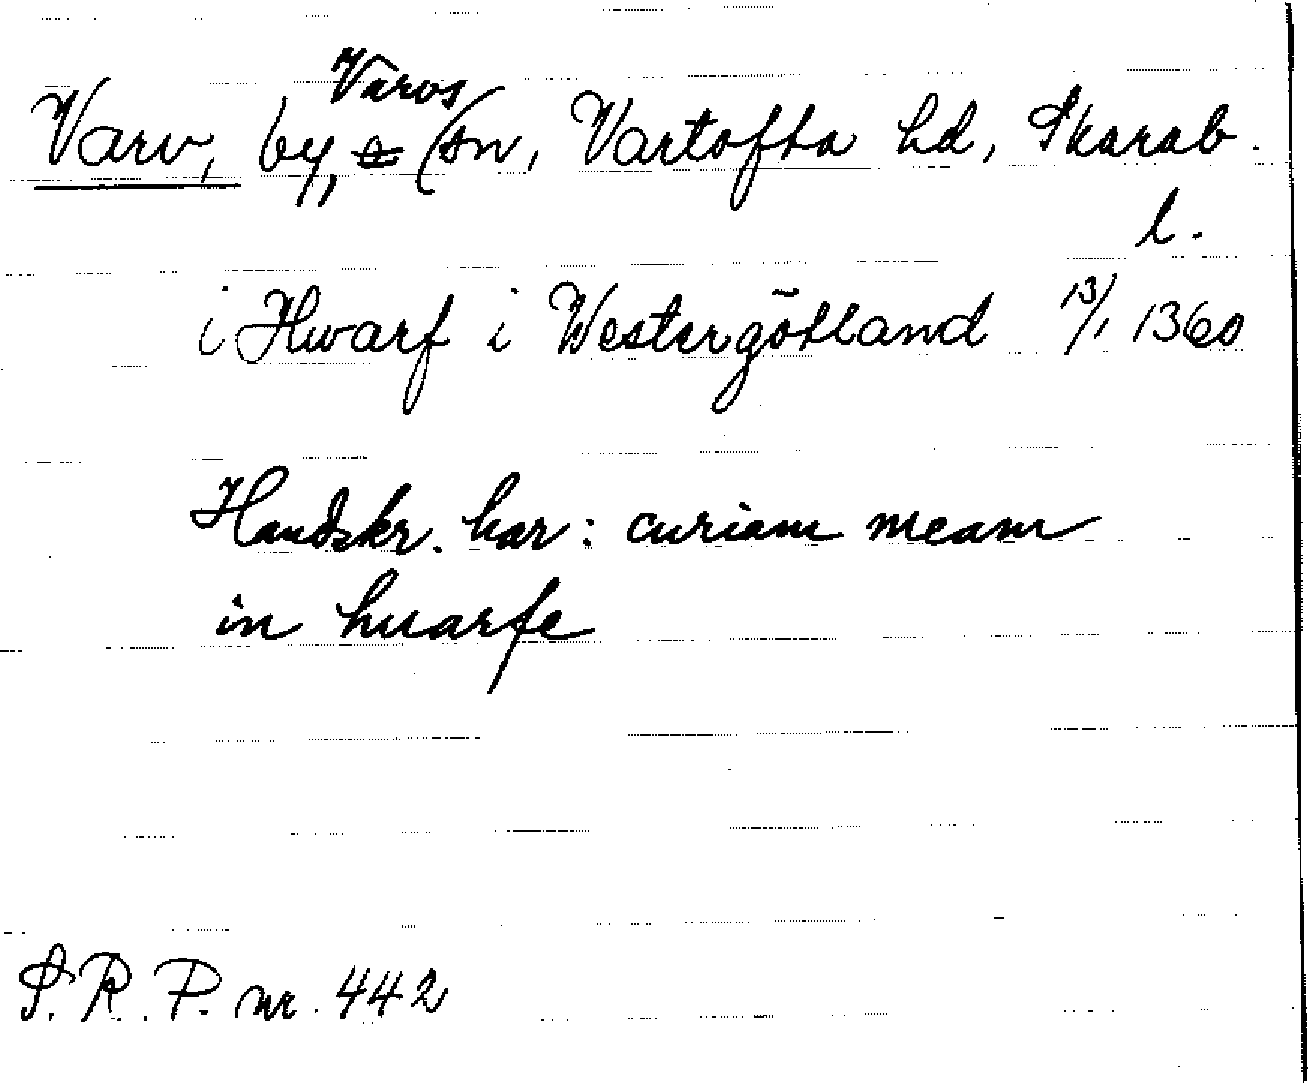 Varvs
Varv, by, (sn, Vartofta hd, Skarab.
l.
i Hwarf i Westergötland 13/1 1360
Handskr. har: curiam meam
in huarfe
S.R.P. nr. 442